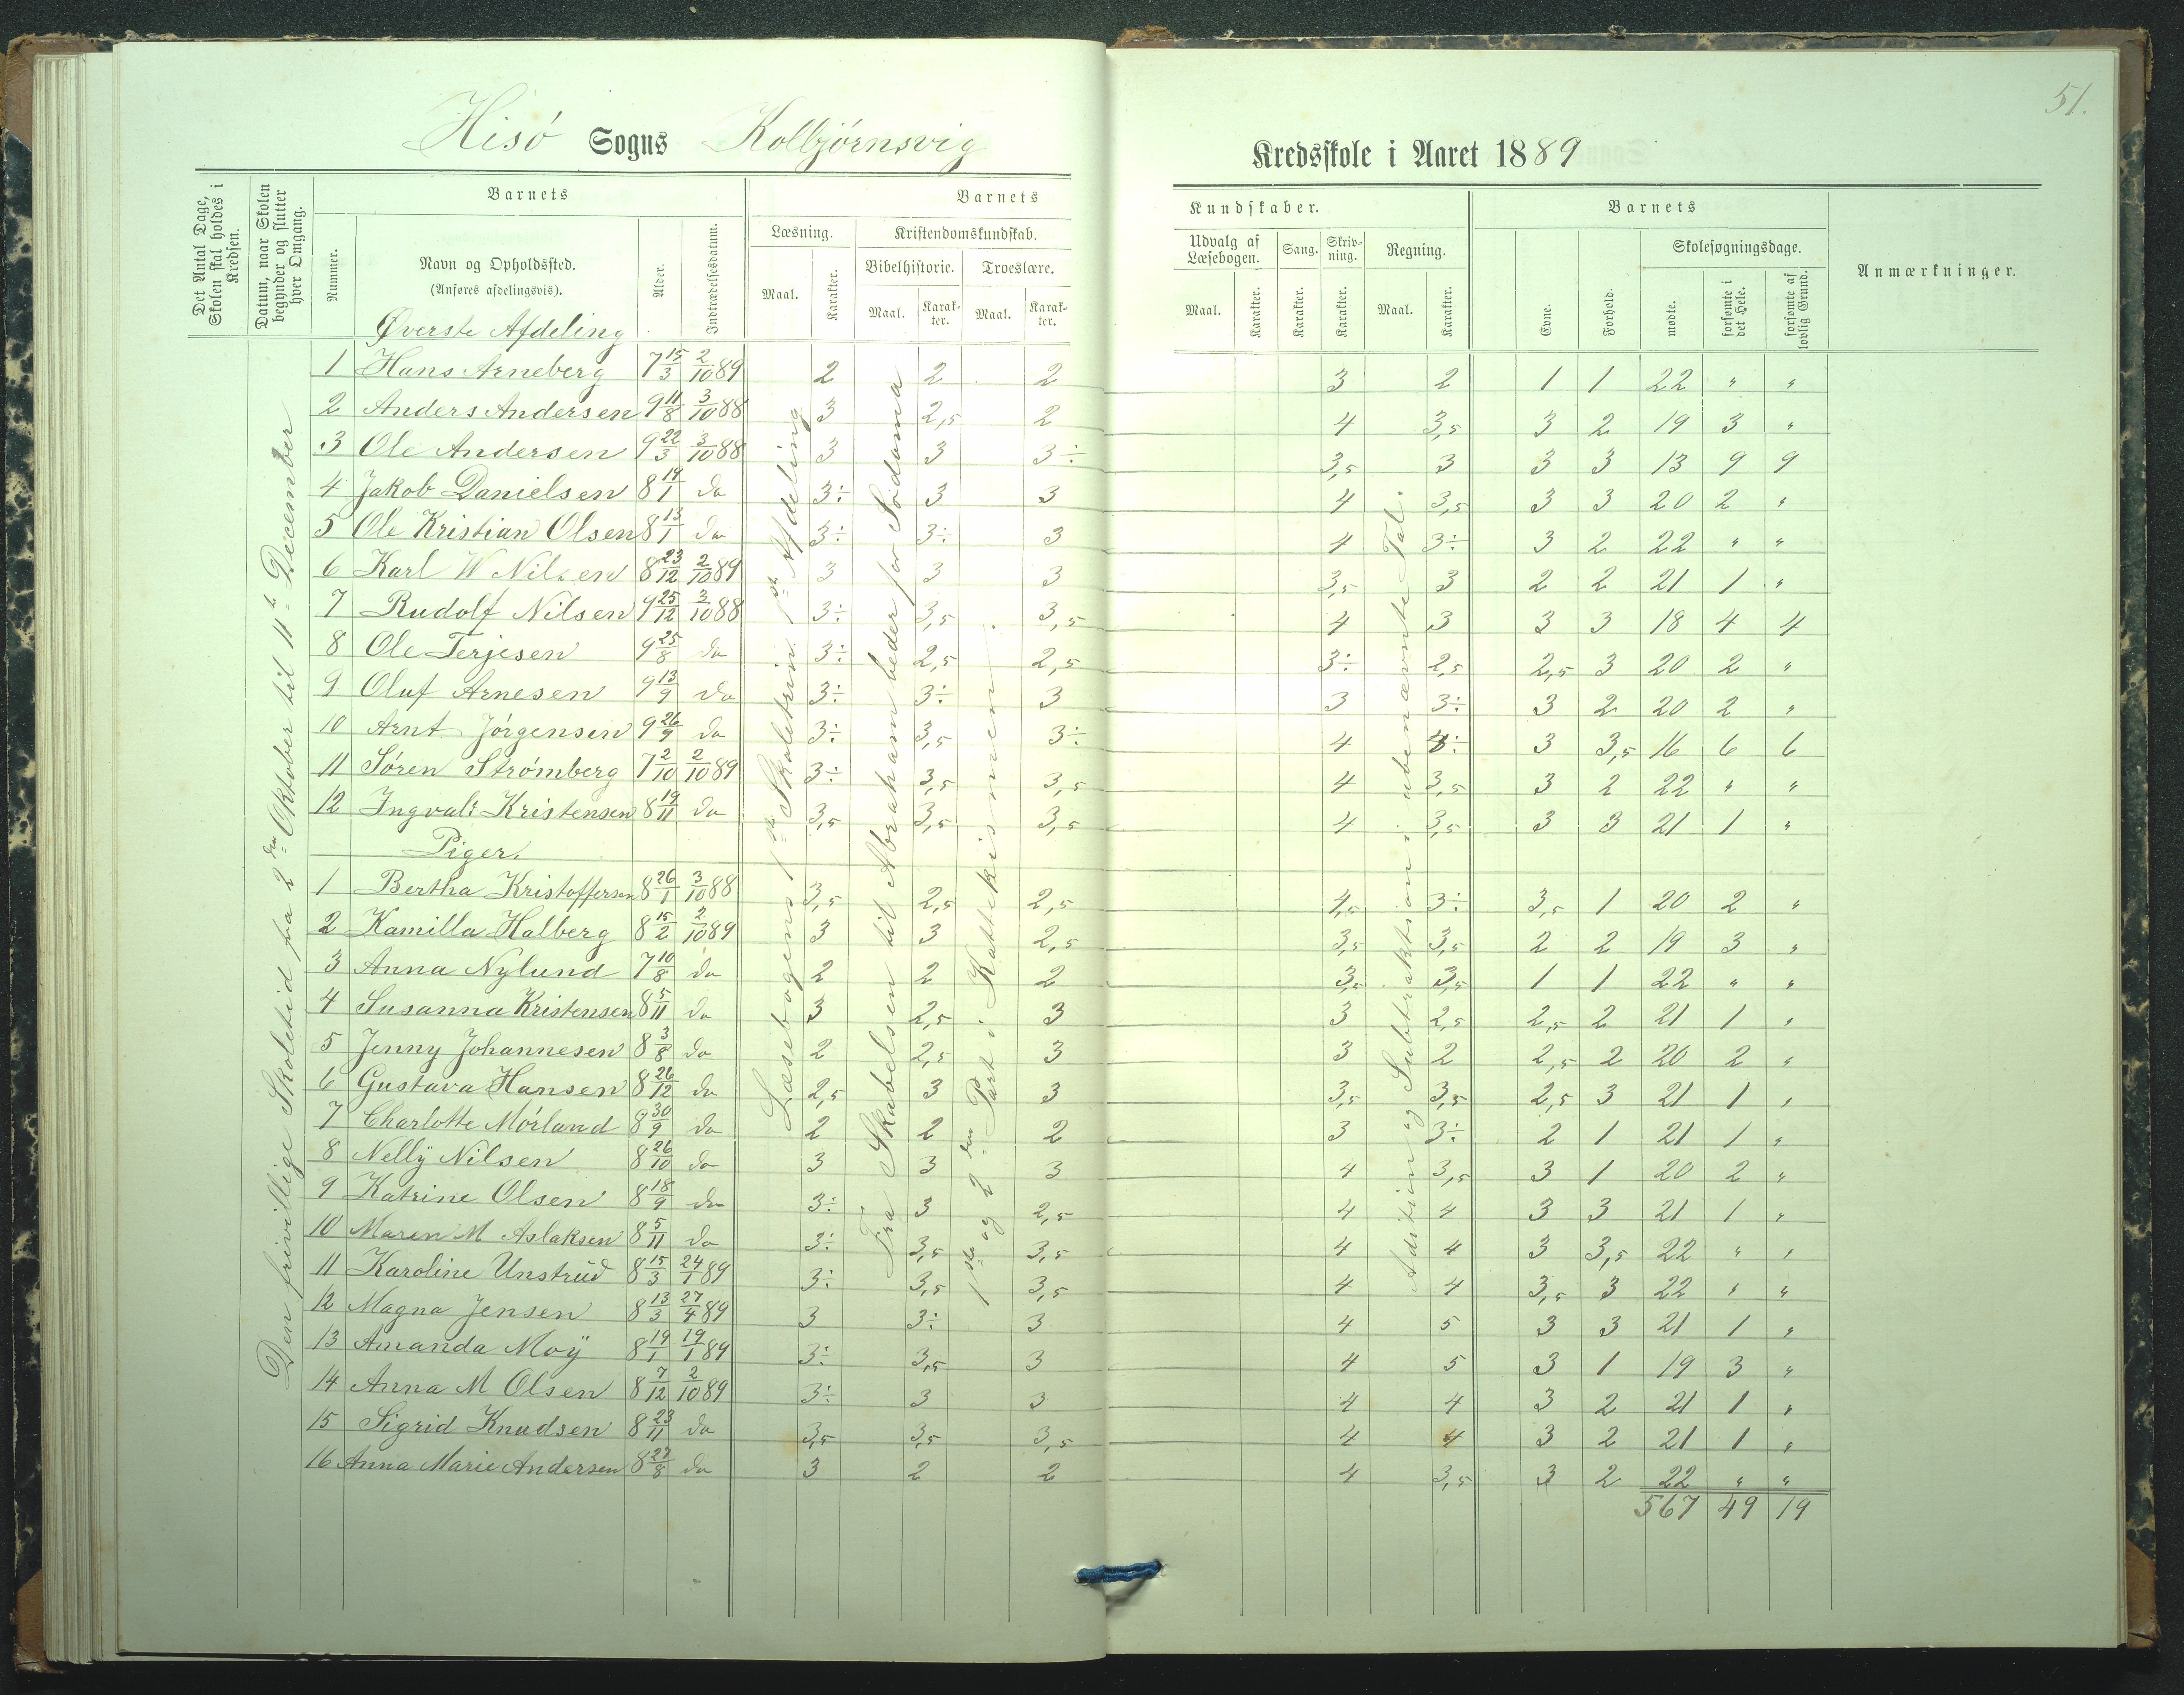 51.
Hisó Sogns Kolbjórnsvig Kredsskole i Aaret 1889
Det Antal Dage, Skolen skal holdes i Kredsen.
Datum, naar Skolen begynder og slutter hver Omgang.
Barnets
Nummer.
Navn og Opholdssted.
(Anføres afdelingsvis).
Alder.
Indtrædelsesdatum.
Barnets Kundskaber.
Læsning.
Maal.
Karakter.
Kristendomskundskab.
Bibelhistorie.
Maal.
Karakter.
Troeslære.
Maal.
Karakter.
Udvalg af Læsebogen.
Maal.
Karakter.
Sang.
Karakter.
Skrivning.
Karakter.
Regning.
Maal.
Karakter.
Barnets
Evne.
Forhold.
Skolesøgningsdage.
mødte.
forsømte i det Hele.
forsømte af lovlig Grund.
Anmærkninger.
Den frivillige Skoletid fra 2den Oktober til 11te December
Læsebogens 1ste Skoletrin 1ste Afdeling
Fra Skabelsen til Abraham beder for Sodoma
1ste og 2den Part i Kattekismen.
Adition og Subtraktion i ubenævnte Tal.
Øverste Afdeling
1 Hans Arneberg 7 15/3 2/10 89 2 2 2 3 2 1 1 22 " "
2 Anders Andersen 9 11/8 3/10 88 3 2,5 2 4 3,5 3 2 19 3 "
3 Ole Andersen 9 22/3 3/10 88 3 3 3÷ 3,5 3 3 3 13 9 9
4 Jakob Danielsen 8 14/1 do 3÷ 3 3 4 3,5 3 3 20 2 "
5 Ole Kristian Olsen 8 13/1 do 3÷ 3÷ 3 4 3÷ 3 2 22 " "
6 Karl W Nilsen 8 23/12 2/10 89 3 3 3 3,5 3 2 2 21 1 "
7 Rudolf Nilsen 9 25/12 3/10 88 3÷ 3,5 3,5 4 3 3 3 18 4 4
8 Ole Terjesen 9 25/8 do 3÷ 2,5 2,5 3÷ 2,5 2,5 3 20 2 "
9 Oluf Arnesen 9 13/9 do 3÷ 3÷ 3 3 3÷ 3 2 20 2 "
10 Arnt Jórgensen 9 26/9 do 3÷ 3,5 3÷ 4 3÷ 3 3,5 16 6 6
11 Søren Strómberg 7 2/10 2/10 89 3÷ 3,5 3,5 4 3,5 3 2 22 " "
12 Ingvald Kristensen 8 19/11 do 3,5 3,5 3,5 4 3,5 3 3 21 1 "
Piger.
1 Bertha Kristoffersen 8 26/1 3/10 88 3,5 2,5 2,5 4,5 3÷ 3,5 1 20 2 "
2 Kamilla Halberg 8 15/2 2/10 89 3 3 2,5 3,5 3,5 2 2 19 3 "
3 Anna Nylund 7 10/8 do 2 2 2 3,5 3,5 1 1 22 " "
4 Susanna Kristensen 8 5/11 do 3 2,5 3 3 2,5 2,5 2 21 1 "
5 Jenny Johannesen 8 3/8 do 2 2,5 3 3 2 2,5 2 20 2 "
6 Gustava Hansen 8 26/12 do 2,5 3 3 3,5 3,5 2,5 3 21 1 "
7 Charlotte Mórland 8 30/9 do 2 2 2 3 3÷ 2 1 21 1 "
8 Nelly Nilsen 8 26/10 do 3 3 3 4 3,5 3 1 20 2 "
9 Katrine Olsen 8 18/9 do 3÷ 3 2,5 4 4 3 3 21 1 "
10 Maren M Aslaksen 8 5/11 do 3÷ 3,5 3,5 4 4 3 3,5 22 " "
11 Karoline Unstrud 8 15/3 24/1 89 3÷ 3,5 3,5 4 4 3,5 3 22 " "
12 Magna Jensen 8 13/3 27/4 89 3 3÷ 3 4 5 3 3 21 1 "
13 Amanda Moÿ 8 19/1 19/1 89 3÷ 3,5 3 4 5 3 1 19 3 "
14 Anna M Olsen 8 7/12 2/10 89 3÷ 3 3 4 4 3 2 21 1 "
15 Sigrid Knudsen 8 23/11 do 3,5 3,5 3,5 4 4 3 2 21 1 "
16 Anna Marie Andersen 8 27/8 do 3 2 2 4 3,5 3 2 22 " "
567 49 19